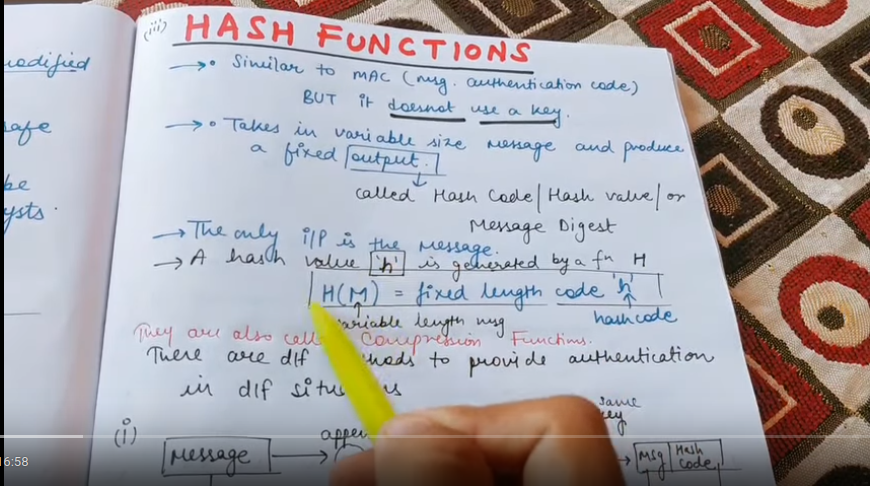 odified
afe
be
ysts.
(iii) HASH FUNCTIONS
→• Similar to MAC (msg. authentication code)
BUT it doesnot use a key.
→• Takes in variable size message and produce
a fixed output.
called Hash Code/Hash value/or
Message Digest
→ The only i/p is the message.
→ A hash value 'h' is generated by a fn H
H(M) = fixed length code 'h'
variable length msg
hashcode
They are also call Compression Functions.
There are dif hods to provide authentication
in dif situ s
same
key
(i)
appe
Message
Msg Hash
Code
16:58